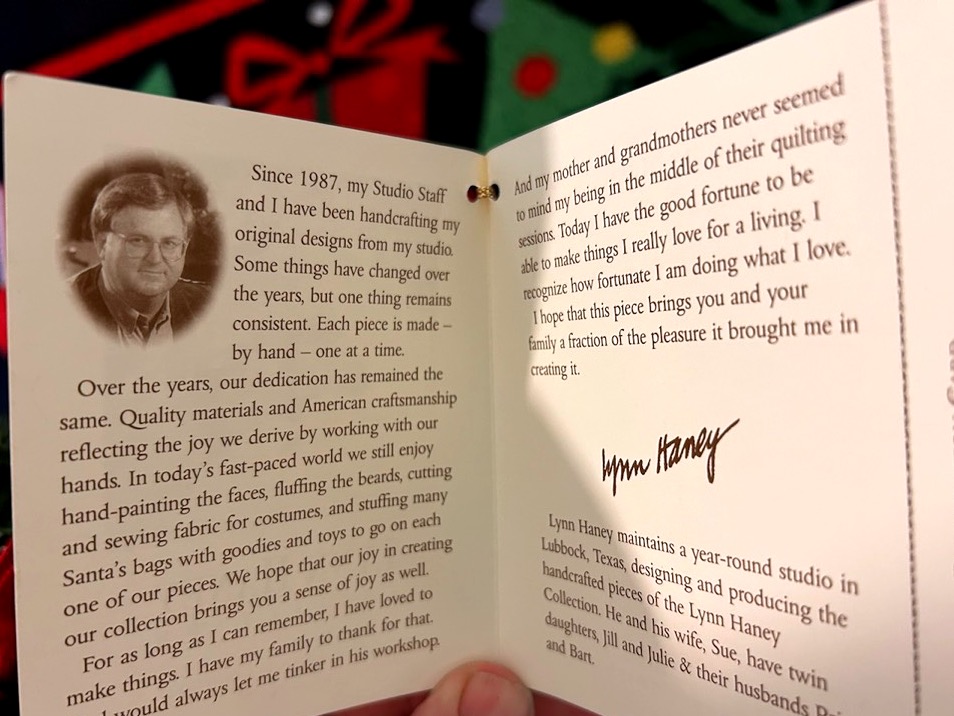 Since 1987, my Studio Staff
and I have been handcrafting my
original designs from my studio.
Some things have changed over
the years, but one thing remains
consistent. Each piece is made –
by hand – one at a time.
Over the years, our dedication has remained the
same. Quality materials and American craftsmanship
reflecting the joy we derive by working with our
hands. In today's fast-paced world we still enjoy
hand-painting the faces, fluffing the beards, cutting
and sewing fabric for costumes, and stuffing many
Santa's bags with goodies and toys to go on each
one of our pieces. We hope that our joy in creating
our collection brings you a sense of joy as well.
For as long as I can remember, I have loved to
make things. I have my family to thank for that.
would always let me tinker in his workshop.
And my mother and grandmothers never seemed
to mind my being in the middle of their quilting
sessions. Today I have the good fortune to be
able to make things I really love for a living. I
recognize how fortunate I am doing what I love.
I hope that this piece brings you and your
family a fraction of the pleasure it brought me in
creating it.
Lynn Haney
Lynn Haney maintains a year-round studio in
Lubbock, Texas, designing and producing the
handcrafted pieces of the Lynn Haney
Collection. He and his wife, Sue, have twin
daughters, Jill and Julie & their husbands
and Bart.